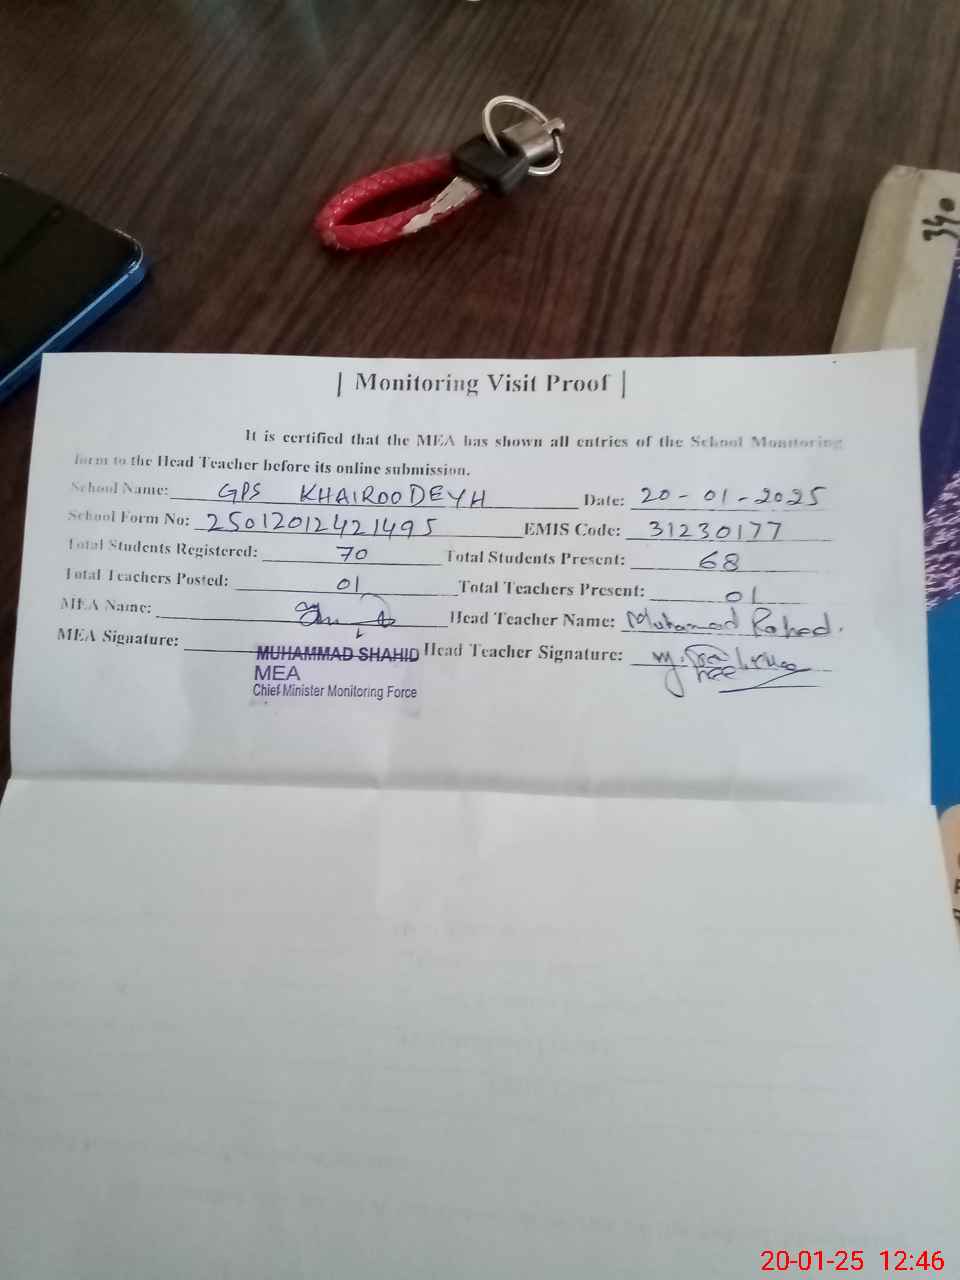 340
| Monitoring Visit Proof |
It is certified that the MEA has shown all entries of the School Monitoring
form to the Head Teacher before its online submission.
School Name: GPS KHAIROODEYH Date: 20-01-2025
School Form No: 25012012421495 EMIS Code: 31230177
Total Students Registered: 70 Total Students Present: 68
Total Teachers Posted: 01 Total Teachers Present: 01
MEA Name: Head Teacher Name: Muhamad Rahed.
MEA Signature: Head Teacher Signature:
MUHAMMAD SHAHID
MEA
Chief Minister Monitoring Force
20-01-25 12:46